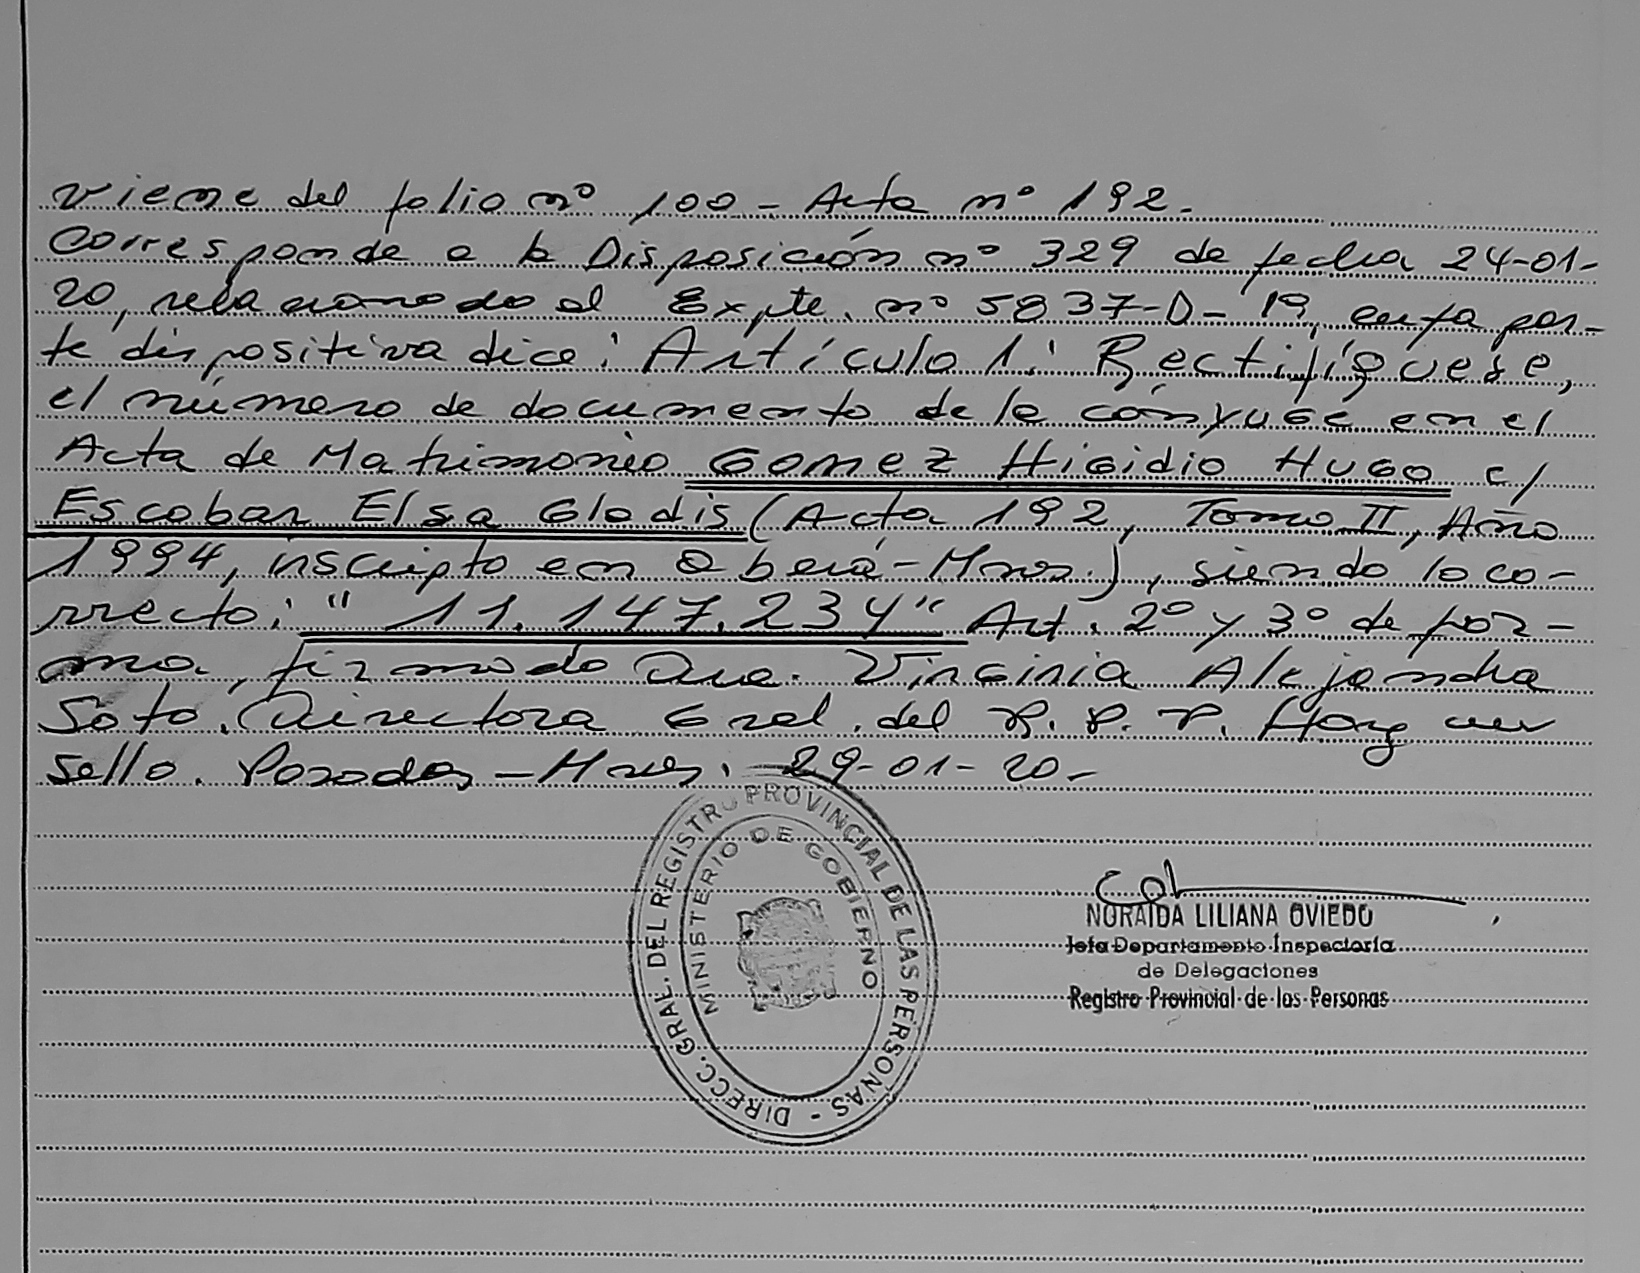 Viene del folio nº 100 - Acta nº 192.
Corresponde a la Disposición nº 329 de fecha 24-01-
20, relacionado al Expte. nº 5837-D-19, cuya par-
te dispositiva dice: Artículo 1: Rectifíquese,
el número de documento de la cónyuge en el
Acta de Matrimonio Gomez Higidio Hugo c/
Escobar Elsa Gladis (Acta 192, Tomo II, Año
1994, inscripto en Oberá-Mnes.), siendo lo co-
rrecto: "11.147.234" Art. 2º y 3º de for-
ma, firmado Dra. Virginia Alejandra
Soto. Directora Gral. del R. P. P. Hay un
sello. Posadas - Mnes. 29-01-20-
DIRECC. GRAL. DEL REGISTRO PROVINCIAL DE LAS PERSONAS -
MINISTERIO DE GOBIERNO
NORAIDA LILIANA OVIEDO
Jefa Departamento Inspectoría
de Delegaciones
Registro Provincial de las Personas